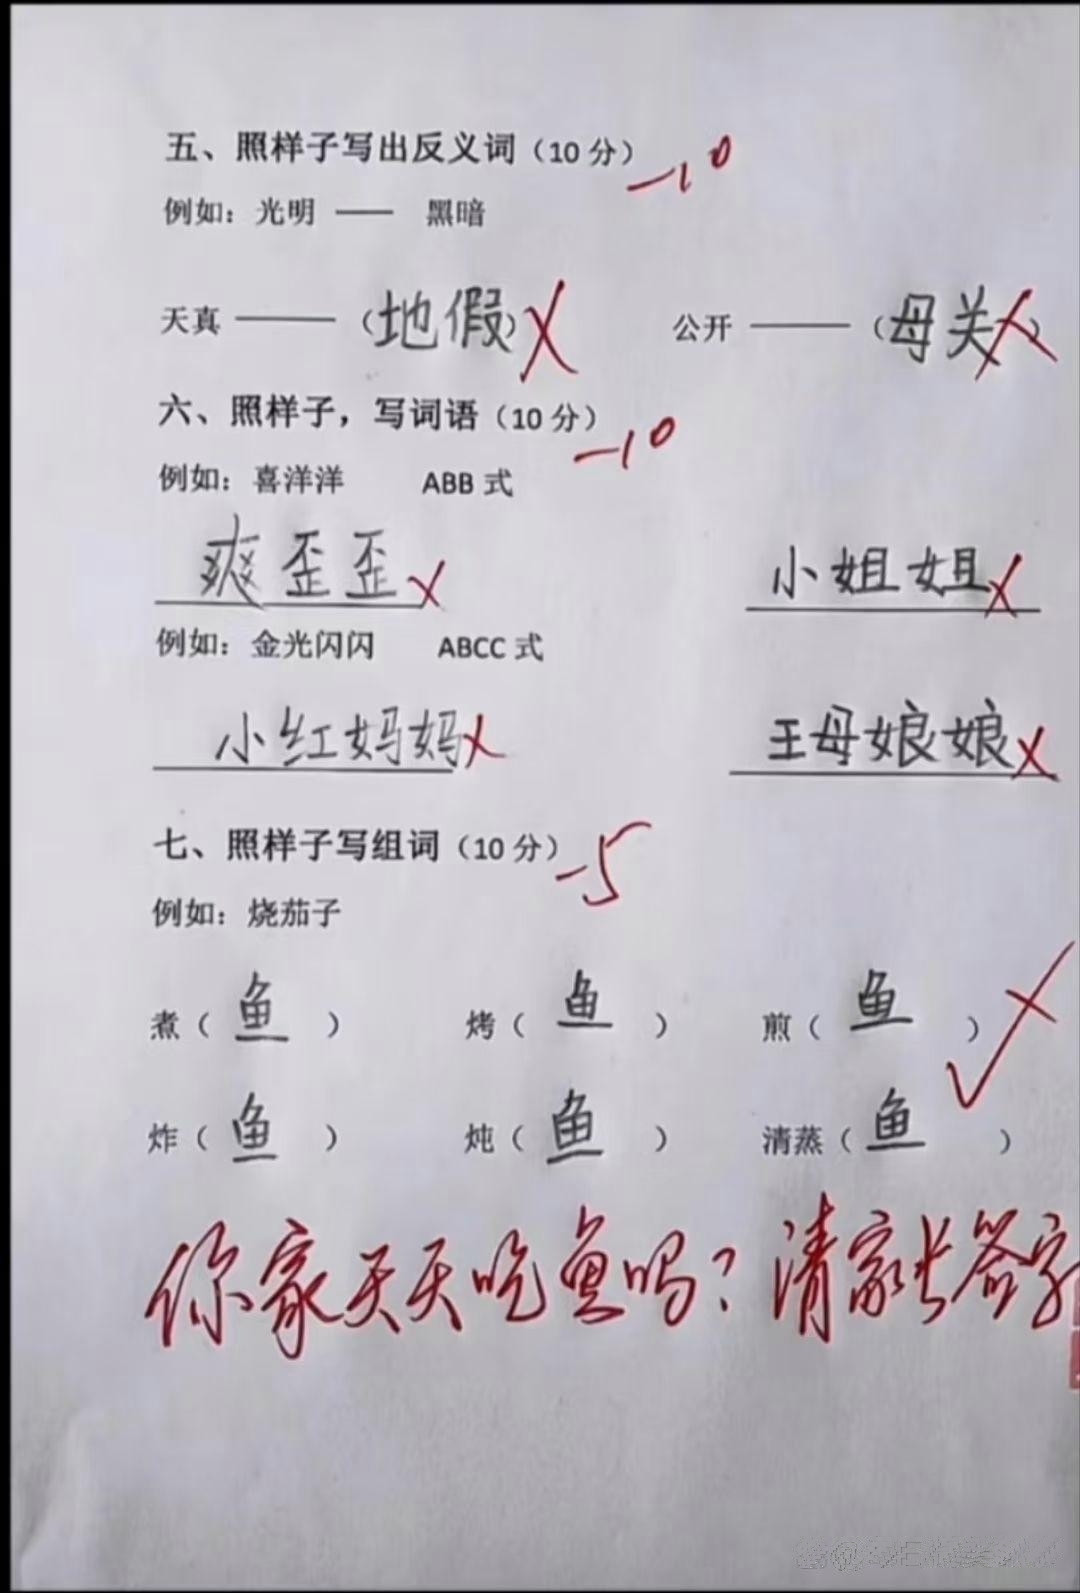 五、照样子写出反义词（10 分） -10
例如：光明 —— 黑暗
天真 ———（地假） 公开 ———（母关）
六、照样子，写词语（10 分） -10
例如：喜洋洋 ABB 式
爽歪歪 小姐姐
例如：金光闪闪 ABCC 式
小红妈妈 王母娘娘
七、照样子写组词（10 分） -5
例如：烧茄子
煮（ 鱼 ） 烤（ 鱼 ） 煎（ 鱼 ）
炸（ 鱼 ） 炖（ 鱼 ） 清蒸（ 鱼 ）
你家天天吃鱼吗？清家长签字